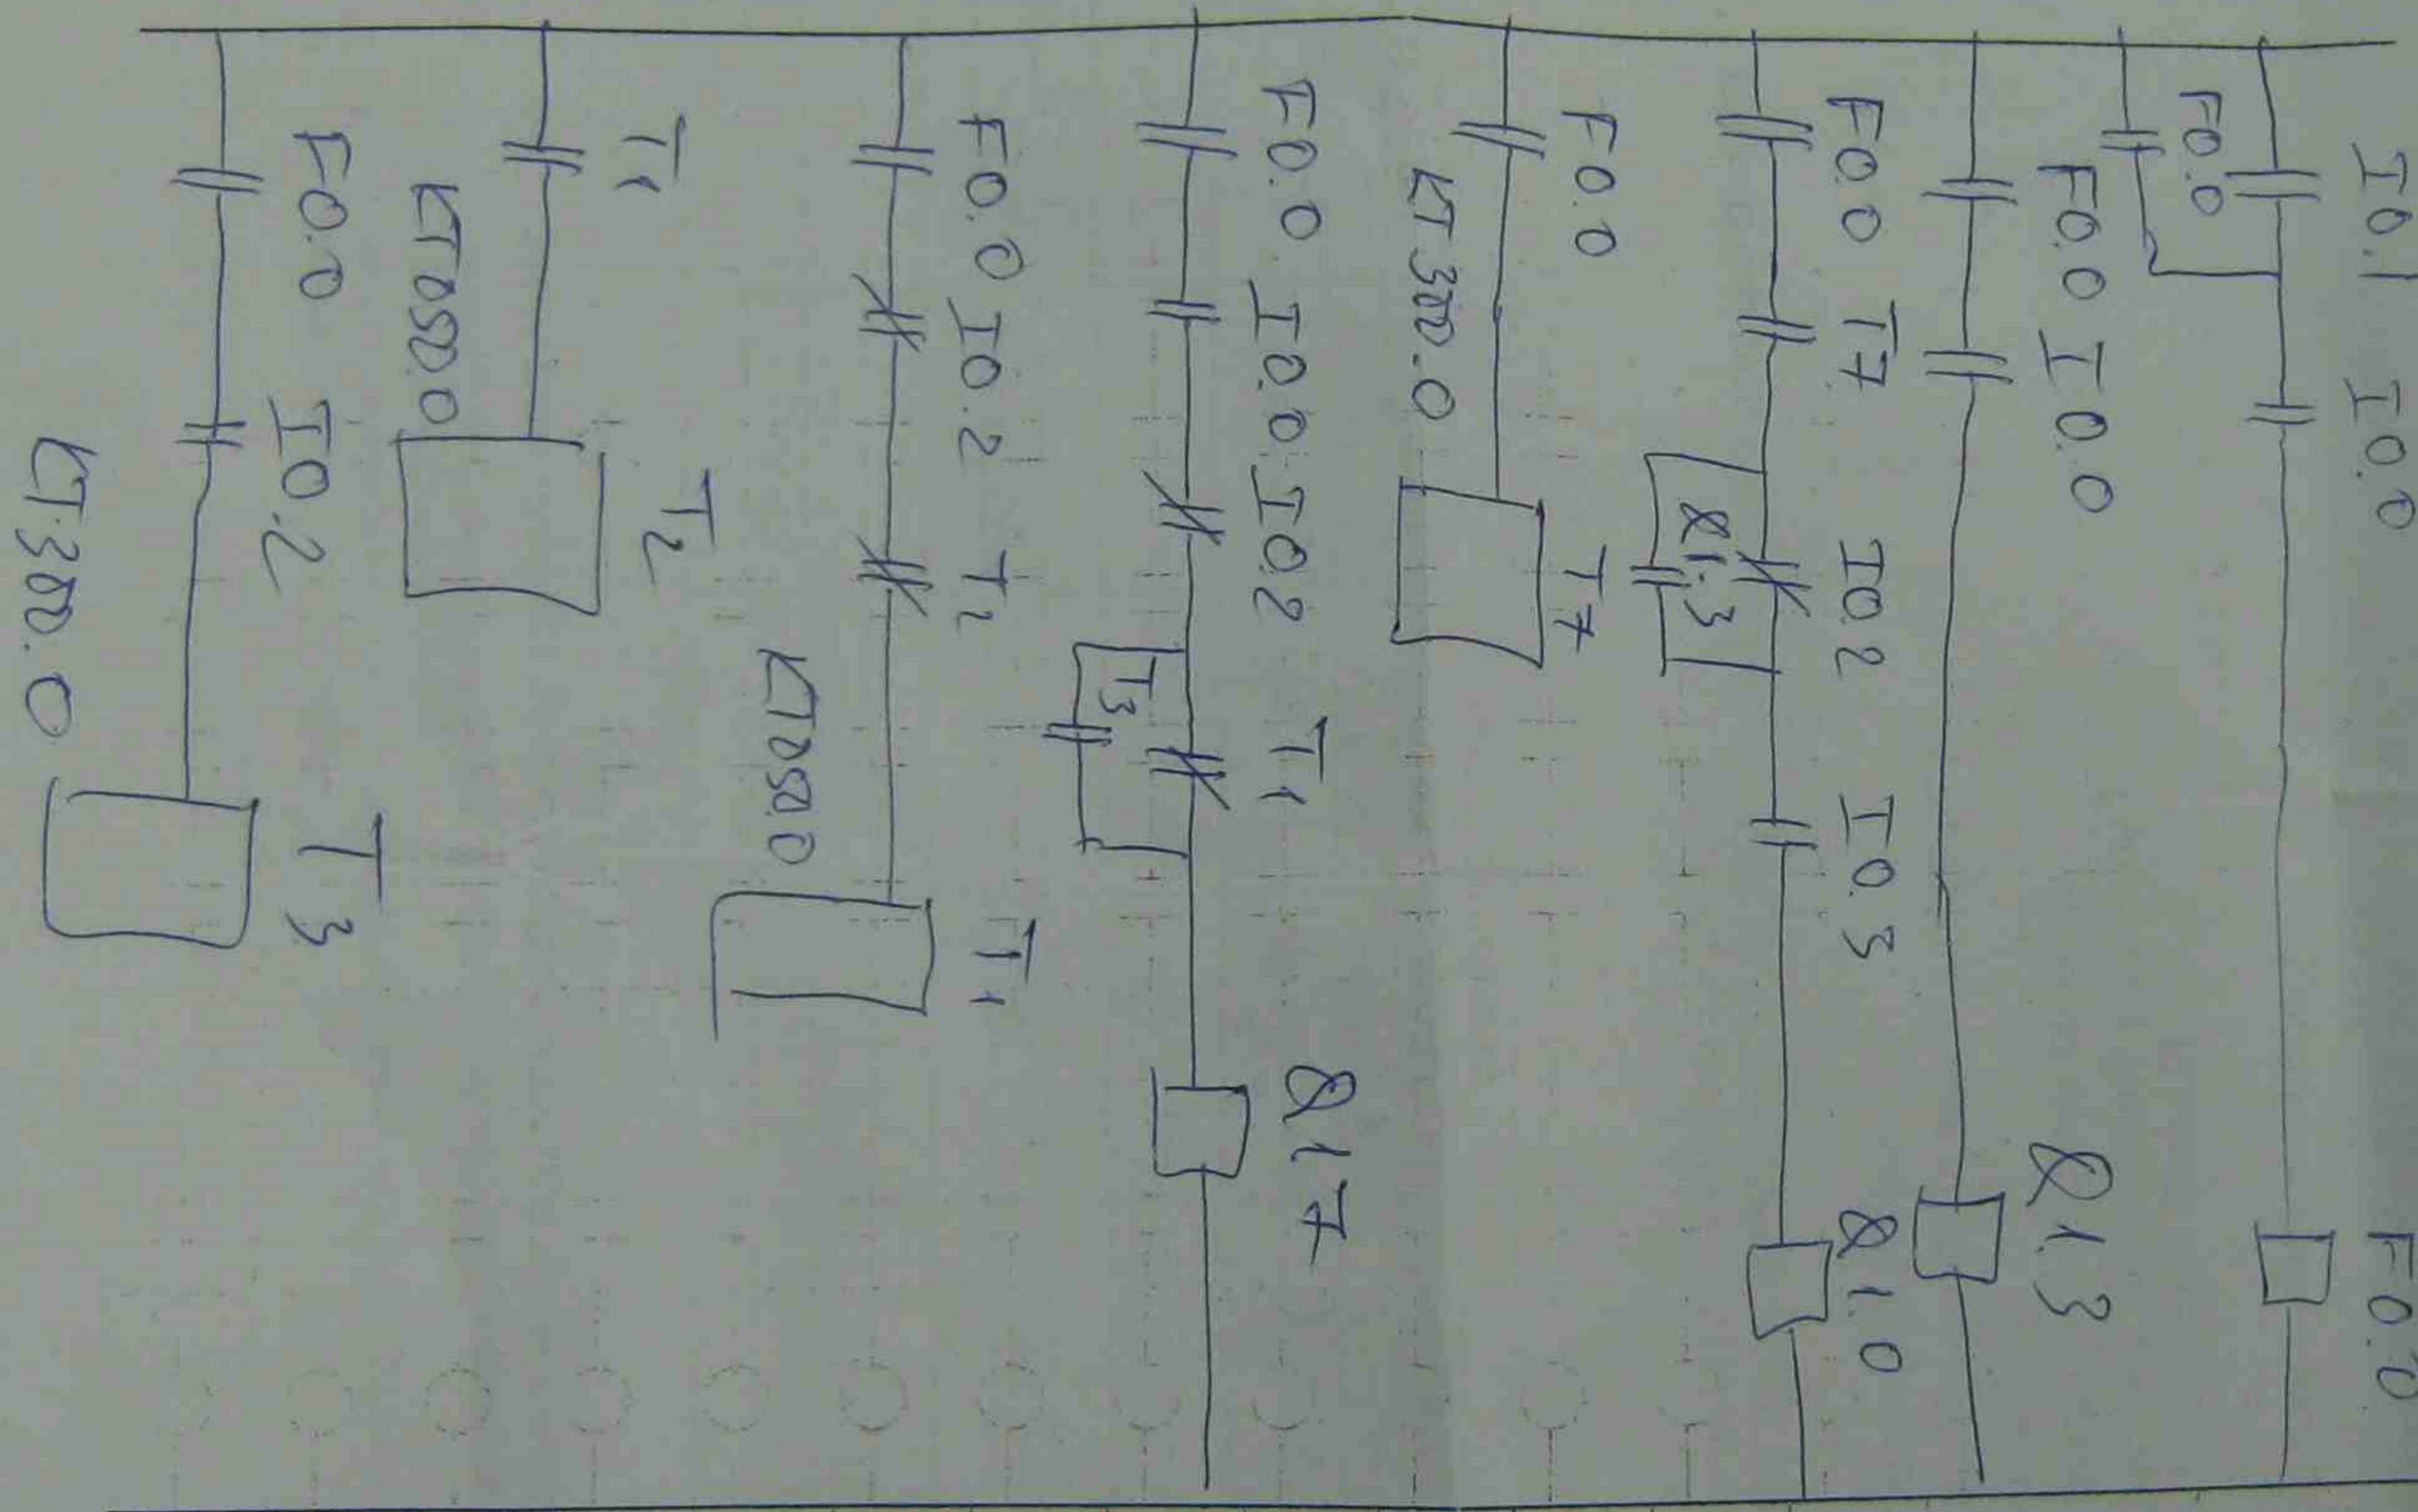 I0.1 I0.0 F0.0
F0.0
F0.0 I0.0 Q1.3
F0.0 T7 I0.2 I0.3 Q1.0
Q1.3
F0.0 T7
KT300.0
F0.0 I0.0 I0.2 T1 Q1.7
T3
F0.0 I0.2 T2 T1
KT050.0
T1 T2
KT050.0
F0.0 I0.2 T3
KT300.0